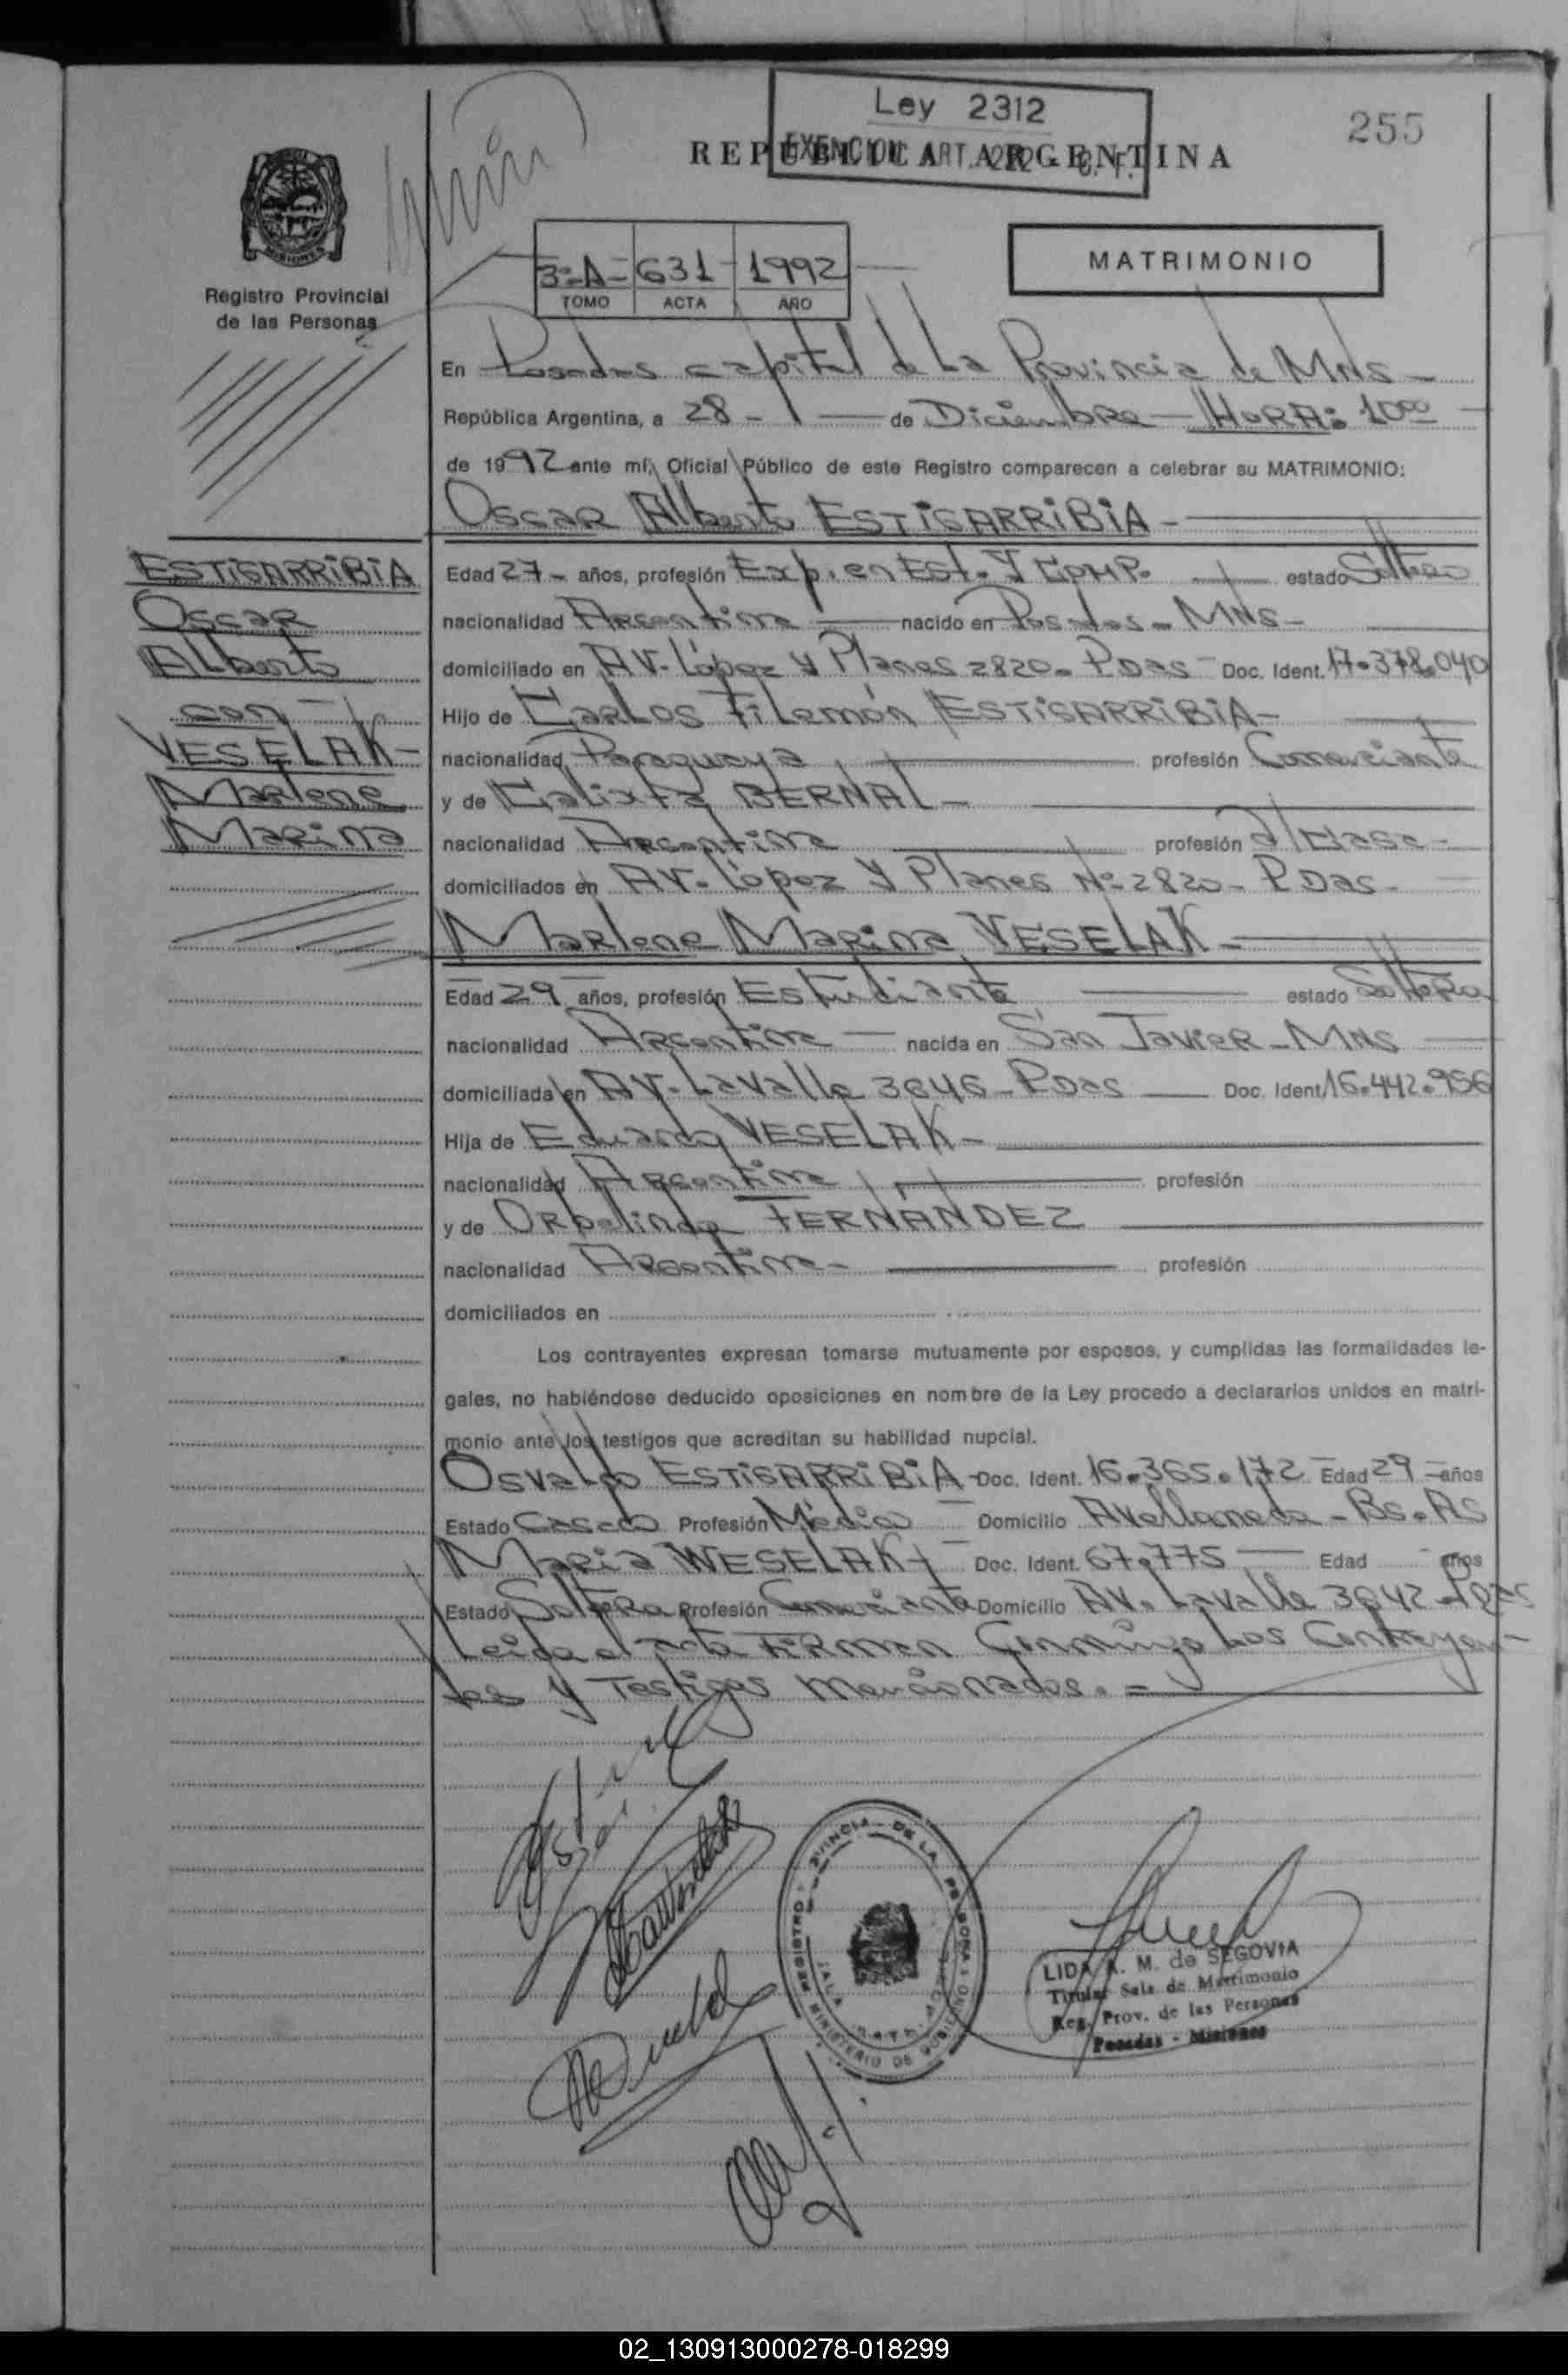 Ley 2312
EXENCION ART. 212 - C. F.
255
REPUBLICA ARGENTINA
3º-A- 631 1992
TOMO ACTA AÑO
MATRIMONIO
Registro Provincial
de las Personas
En Posadas capital de La Provincia de MNS -
República Argentina, a 28 - de Diciembre - HORA: 10ºº
de 1992 ante mí, Oficial Público de este Registro comparecen a celebrar su MATRIMONIO:
Oscar Alberto ESTIGARRIBIA -
ESTIGARRIBIA
Oscar
Alberto
con
VESELAK -
Marlene
Marina
Edad 27 - años, profesión Exp. en Est. Y COMP. estado Soltero
nacionalidad Argentina nacido en Posadas - MNS -
domiciliado en AV. López Y Planes 2820 - PDas - Doc. Ident. 17.378.040
Hijo de Carlos Filemón ESTIGARRIBIA -
nacionalidad Paraguaya profesión Comerciante
y de Calixta BERNAL -
nacionalidad Argentina profesión a/casa -
domiciliados en AV. López Y Planes Nº 2820 - PDas -
Marlene Marina VESELAK -
Edad 29 años, profesión Estudiante estado Soltera
nacionalidad Argentina nacida en San Javier - MNS
domiciliada en AV. Lavalle 3646 - PDas Doc. Ident. 16.442.956
Hija de Eduardo VESELAK -
nacionalidad Argentina profesión
y de Orbelinda FERNANDEZ
nacionalidad Argentina - profesión
domiciliados en
Los contrayentes expresan tomarse mutuamente por esposos, y cumplidas las formalidades le-
gales, no habiéndose deducido oposiciones en nombre de la Ley procedo a declararlos unidos en matri-
monio ante los testigos que acreditan su habilidad nupcial.
Osvaldo ESTIGARRIBIA - Doc. Ident. 16.365.172 Edad 29 - años
Estado Casado Profesión Médico Domicilio Avellaneda - Bs. As
Maria WESELAK - Doc. Ident. 67.775 Edad años
Estado Soltera Profesión Comerciante Domicilio AV. Lavalle 3642 - Pdas
Leida el acta FIRMAN Conmigo Los Contrayen-
tes y Testigos mencionados. -
REGISTRO PROVINCIAL DE LAS PERSONAS
MINISTERIO DE GOBIERNO
LIDA R. M. de SEGOVIA
Titular Sala de Matrimonio
Reg. Prov. de las Personas
Posadas - Misiones
02_130913000278-018299